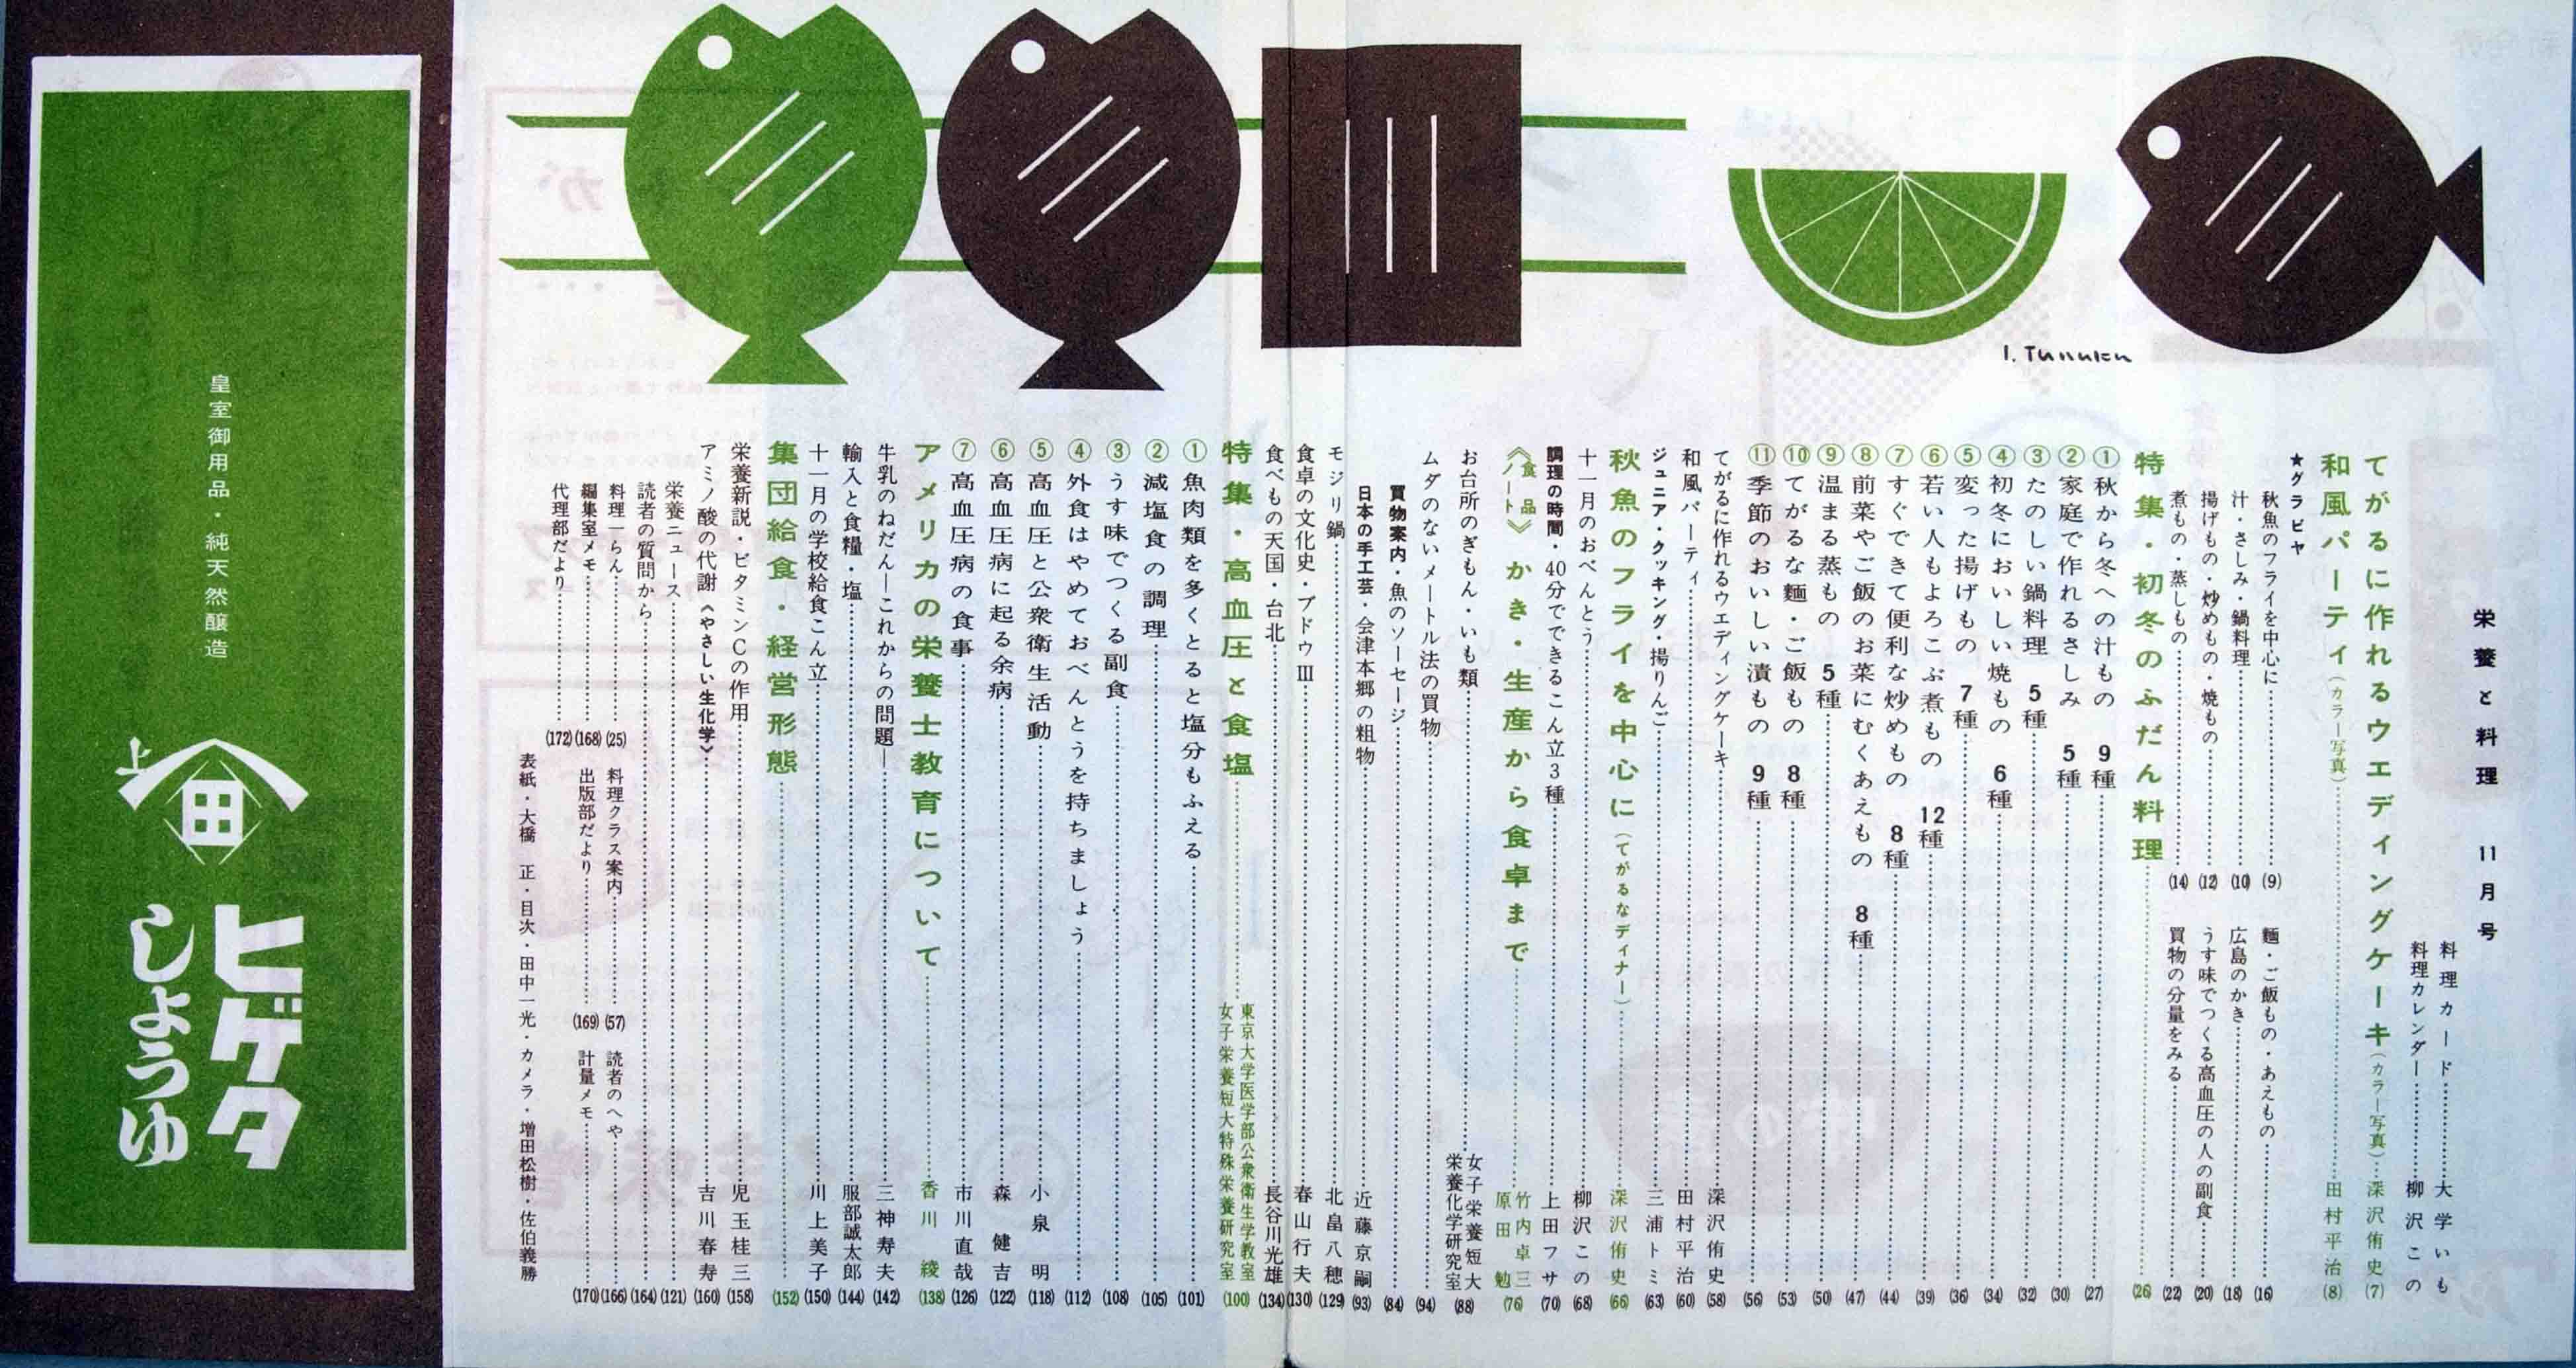 栄養と料理 11月号
料理カード……大学いも
料理カレンダー……柳沢この
てがるに作れるウエディングケーキ(カラー写真)…深沢侑史(7)
和風パーティ(カラー写真)……田村平治(8)
★グラビヤ
秋魚のフライを中心に……(9)
汁・さしみ・鍋料理……(10)
揚げもの・炒めもの・焼もの……(12)
煮もの・蒸しもの……(14)
麺・ご飯もの・あえもの……(16)
広島のかき……(18)
うす味でつくる高血圧の人の副食……(20)
買物の分量をみる……(22)
特集・初冬のふだん料理……(26)
①秋から冬への汁もの 9種……(27)
②家庭で作れるさしみ 5種……(30)
③たのしい鍋料理 5種……(32)
④初冬においしい焼もの 6種……(34)
⑤変った揚げもの 7種……(36)
⑥若い人もよろこぶ煮もの 12種……(39)
⑦すぐできて便利な炒めもの 8種……(44)
⑧前菜やご飯のお菜にむくあえもの 8種……(47)
⑨温まる蒸もの 5種……(50)
⑩てがるな麺・ご飯もの 8種……(53)
⑪季節のおいしい漬もの 9種……(56)
てがるに作れるウエディングケーキ……深沢侑史(58)
和風パーティ……田村平治(60)
ジュニア・クッキング・揚りんご……三浦トミ(63)
秋魚のフライを中心に(てがるなディナー)……深沢侑史(66)
十一月のおべんとう……柳沢この(68)
調理の時間・40分でできるこん立3種……上田フサ(70)
《食品ノート》かき・生産から食卓まで……竹内卓三 原田勉(76)
お台所のぎもん・いも類……女子栄養短大栄養化学研究室(88)
ムダのないメートル法の買物……(94)
買物案内・魚のソーセージ……(84)
日本の手工芸・会津本郷の粗物……近藤京嗣(93)
モジリ鍋……北畠八穂(129)
食卓の文化史・ブドウⅢ……春山行夫(130)
食べもの天国・台北……長谷川光雄(134)
特集・高血圧と食塩……東京大学医学部公衆衛生学教室 女子栄養短大特殊栄養研究室(100)
①魚肉類を多くとると塩分もふえる……(101)
②減塩食の調理……(105)
③うす味でつくる副食……(108)
④外食はやめておべんとうを持ちましょう……(112)
⑤高血圧と公衆衛生活動……小泉明(118)
⑥高血圧病に起る余病……森健吉(122)
⑦高血圧病の食事……市川直哉(126)
アメリカの栄養士教育について……香川綾(138)
牛乳のねだん―これからの問題―……三神寿夫(142)
輸入と食糧・塩……服部誠太郎(144)
十一月の学校給食こん立……川上美子(150)
集団給食・経営形態……(152)
栄養新説・ビタミンCの作用……児玉桂三(158)
アミノ酸の代謝《やさしい生化学》……吉川春寿(160)
栄養ニュース……(121)
読者の質問から……(164)
料理一らん……(25)
料理クラス案内……(57)
読者のへや……(166)
編集室メモ……(168)
出版部だより……(169)
計量メモ……(170)
代理部だより……(172)
表紙・大橋 正・目次・田中一光・カメラ・増田松樹・佐伯義勝
I. Tanaka
皇室御用品・純天然醸造
上
田
ヒゲタ
しょうゆ